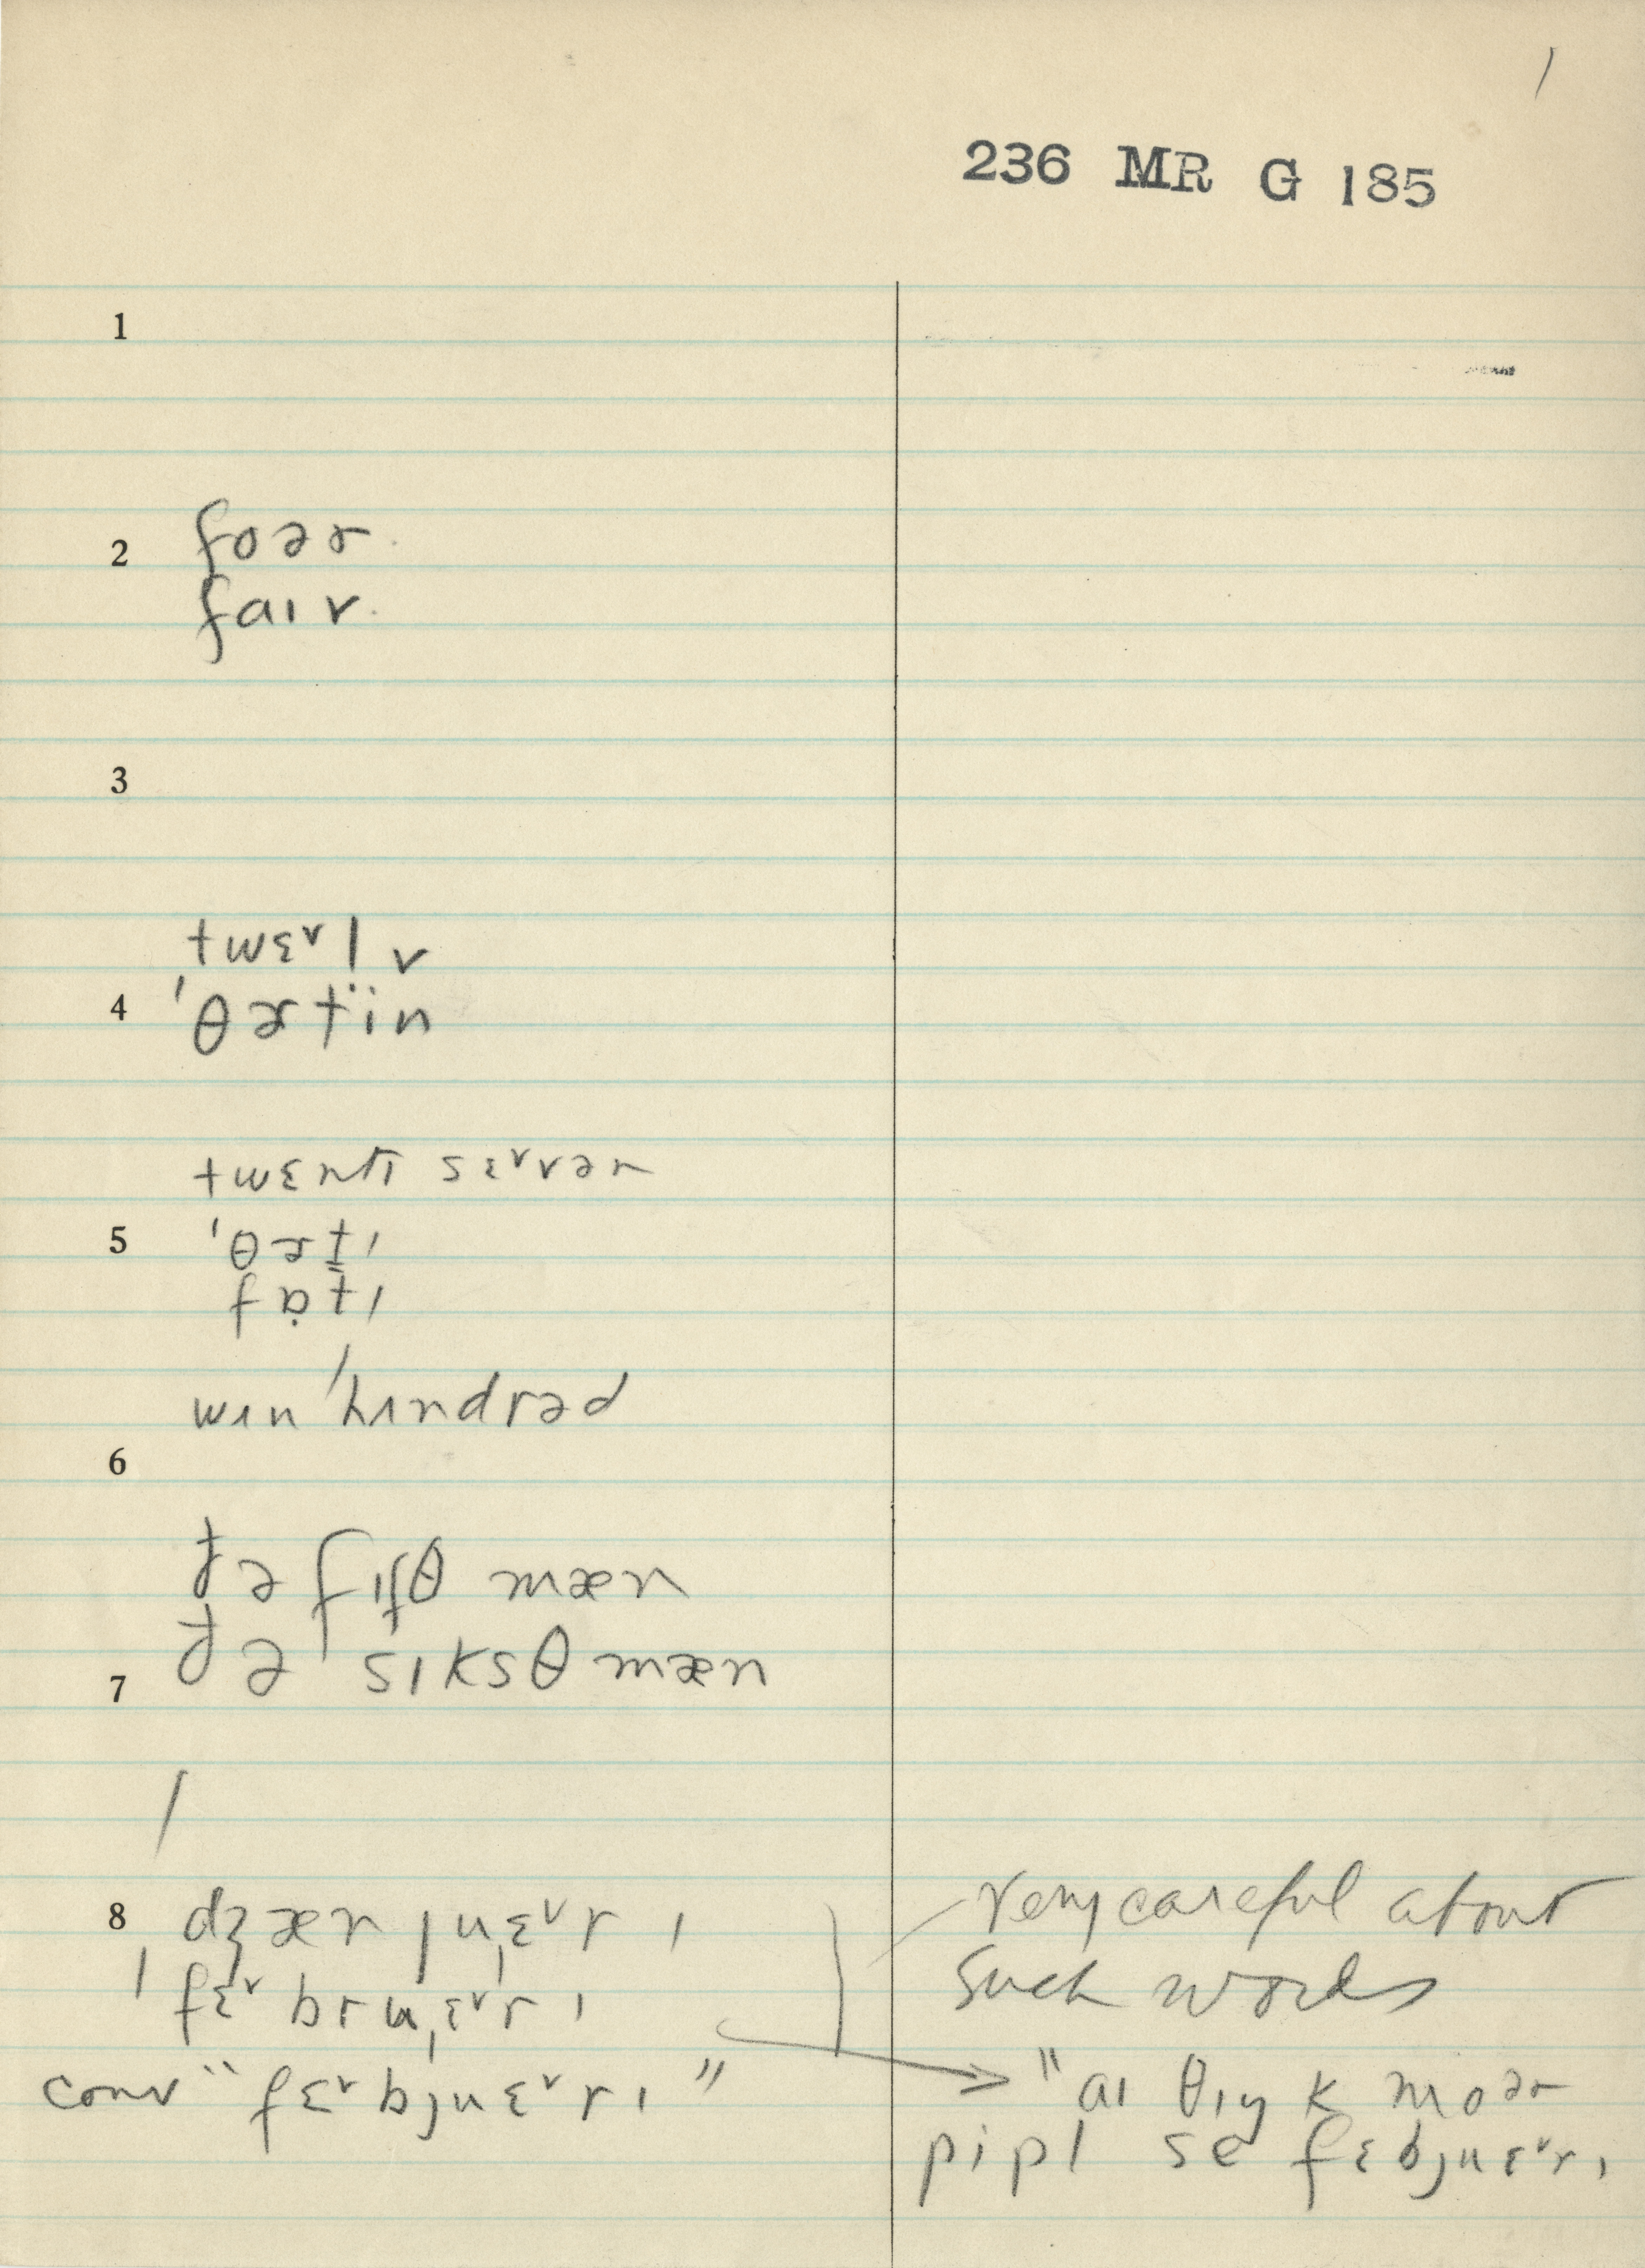 1
236 MR G 185
1
2 foɚ
faɪv
3
twɛ˅lv
4 ˈθɚtïn
twɛntɪ sɛ˅vən
5 ˈθɚt̬ɪ
fɒ̣t̬ɪ
wɪn ˈhɪndrəd
6
ðə fɪfθ mæn
7 ðə sɪksθ mæn
8 ˈdʒænjuˌɛ˅rɪ
ˈfɛ˅bruˌɛ˅rɪ
conv "fɛ˅bjuɛ˅rɪ"
very careful about
such words
"aɪ θɪŋk moɚ
pipl se fɛbjuɛ˅rɪ